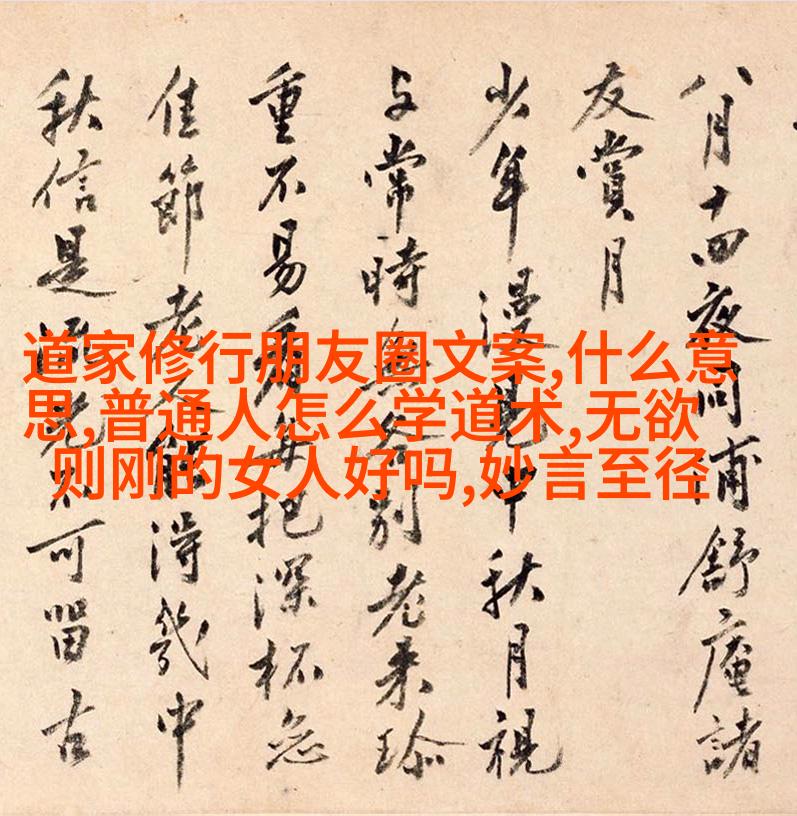 道家修行朋友圈文案,什么意
思,普通人怎么学道术,无欲
则刚的女人好吗,妙言至径
八月十四夜同浦舒庵諸
友賞月
少年漫見中秋月視
与常時無分別老来珍
重不易看每把深杯
佳節老人能得幾中
秋信是流光不可留古